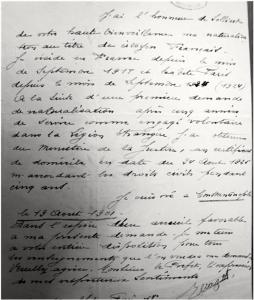 J'ai l'honneur de solliciter
de votre haute bienveillance ma naturalisa
tion au titre de citoyen Français.
Je réside en France depuis le mois
de Septembre 1918 et habite Paris
depuis le mois de Septembre (1924)
A la suite d'une première demande
de naturalisation après cinq années
de service comme engagé volontaire
dans la Légion étrangère j'ai obtenu
du Ministère de la Justice, un certificat
de domicile en date du 24 Aout 1925
m'accordant les droits civils pendant
cinq ans.
Je suis né à Constantinople
le 13 Aout 1901.
Dans l'espoir d'un accueil favorable
à ma présente demande je me tiens
à votre entière disposition pour tous
les renseignements que l'on voudra me demander
Veuillez agréer, Monsieur le Préfet,
mes respectueux Sentiments